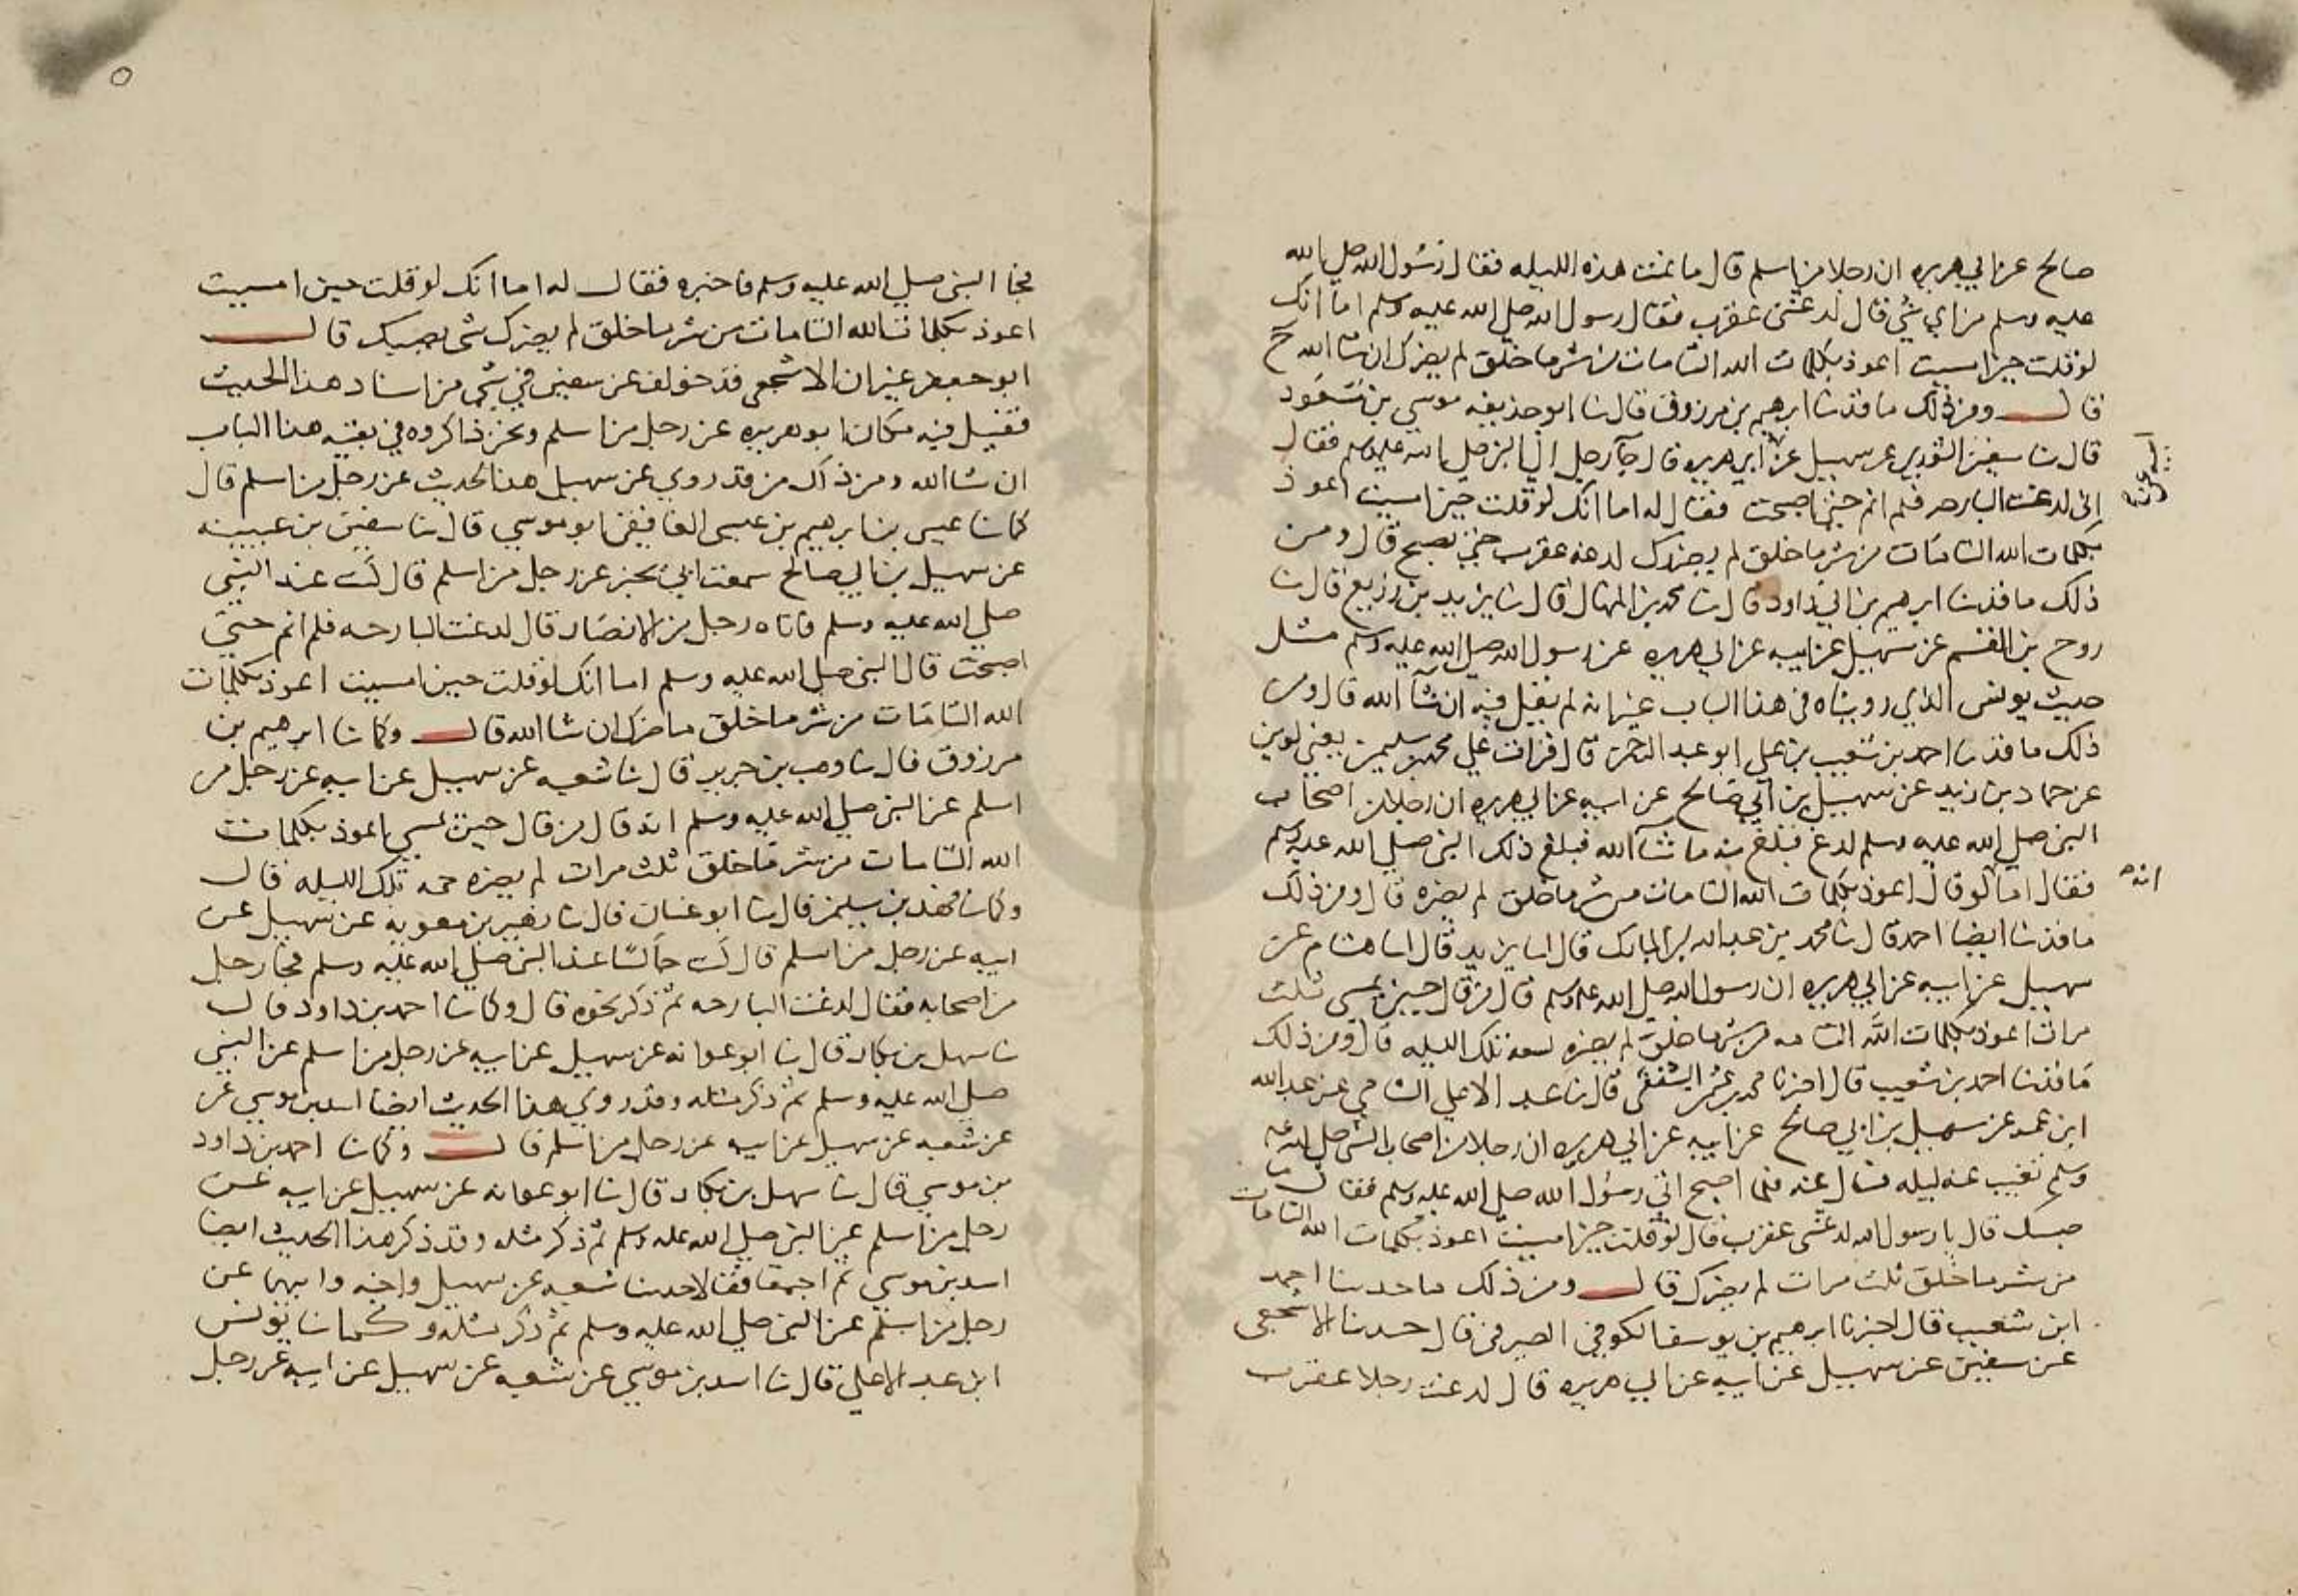 صالح عن ابي هريره ان رجلا من اسلم قال ما نمت هذه الليله فقال رسول الله صلي الله
عليه وسلم من اي شي قال لدغتني عقرب فقال رسول الله صلي الله عليه وسلم اما انك
لو قلت حين امسيت اعوذ بكلمات الله التامات من شر ما خلق لم يضرك ان شا الله
قال ومن ذلك ما قد نا ابرهيم بن مرزوق قال نا ابو حذيفه موسي بن مسعود
قال نا سفين الثوري عن سهيل عن ابي هريره قال جآ رجل الي النبي صلي الله عليه وسلم فقال
اني لدغت البارحه فلم انم حتي اصبحت فقال له اما انك لو قلت حين امسيت اعوذ
بكلمات الله التامات من شر ما خلق لم يضرك لدغه عقرب حتي تصبح قال ومن
ذلك ما قد نا ابرهيم بن ابي داود قال نا محمد بن المنهال قال نا يزيد بن زريع قال نا
روح بن القسم عن سهيل عن ابيه عن ابي هريره عن رسول الله صلي الله عليه وسلم مثل
حديث يونس الذي رويناه في هذا الباب غير انه لم يقل فيه ان شآ الله قال ومن
ذلك ما قد نا احمد بن شعيب بن علي ابو عبد الرحمن قال قرات علي محمد بن سليمن يعني لوين
عن حماد بن زيد عن سهيل بن ابي صالح عن ابيه عن ابي هريره ان رجلا من اصحاب
النبي صلي الله عليه وسلم لدغ فبلغ منه ما شآ الله فبلغ ذلك النبي صلي الله عليه وسلم
فقال اما لو قال اعوذ بكلمات الله التامات من شر ما خلق لم يضره قال ومن ذلك
انه
ما قد نا ايضا احمد قال نا محمد بن عبد الله بن المبارك قال انا يزيد قال انا هشام عن
سهيل عن ابيه عن ابي هريره ان رسول الله صلي الله عليه وسلم قال من قال حين يمسي ثلث
مرات اعوذ بكلمات الله التامه من شر ما خلق لم يضره لسعه تلك الليله قال ومن ذلك
ما قد نا احمد بن شعيب قال اخبرنا محمد بن عثمن الثقفي قال نا عبد الاعلي السامي عن عبيد الله
ابن عمر عن سهيل بن ابي صالح عن ابيه عن ابي هريره ان رجلا من اصحاب النبي صلي الله عليه
وسلم تغيب عنه ليله فسال عنه فلما اصبح اتي رسول الله صلي الله عليه وسلم فقال ما
حبسك قال يا رسول الله لدغتني عقرب قال لو قلت حين امسيت اعوذ بكلمات الله التامات
من شر ما خلق ثلث مرات لم يضرك قال ومن ذلك ما حدثنا احمد
ابن شعيب قال اخبرنا ابرهيم بن يوسف الكوفي الصيرفي قال حدثنا الاشجعي
عن سفين عن سهيل عن ابيه عن ابي هريره قال لدغت رجلا عقرب
فجا النبي صلي الله عليه وسلم فاخبره فقال له اما انك لو قلت حين امسيت
اعوذ بكلمات الله التامات من شر ما خلق لم يضرك شي يصيبك قال
ابو جعفر غير ان الاشجعي قد خولف عن سفين في شي من اسناد هذا الحديث
فقيل فيه مكان ابو هريره عن رجل من اسلم ونحن ذاكروه في بقيه هذا الباب
ان شا الله ومن ذاك من قد روي عن سهيل هذا الحديث عن رجل من اسلم قال
كما نا عيسي بن ابرهيم بن عيسي الغافقي ابو موسي قال نا سفين بن عيينه
عن سهيل بن ابي صالح سمعت ابي يخبر عن رجل من اسلم قال كنت عند النبي
صلي الله عليه وسلم فاتاه رجل من الانصار قال لدغت البارحه فلم انم حتي
اصبحت قال النبي صلي الله عليه وسلم اما انك لو قلت حين امسيت اعوذ بكلمات
الله التامات من شر ما خلق ما ضرك ان شا الله قال وكما نا ابرهيم بن
مرزوق قال نا وهب بن جرير قال نا شعبه عن سهيل عن ابيه عن رجل من
اسلم عن النبي صلي الله عليه وسلم انه قال من قال حين يمسي اعوذ بكلمات
الله التامات من شر ما خلق ثلث مرات لم يضره حمه تلك الليله قال
وكما نا فهد بن سليمن قال نا ابو غسان قال نا زهير بن معويه عن سهيل عن
ابيه عن رجل من اسلم قال كنت جالسا عند النبي صلي الله عليه وسلم فجا رجل
من اصحابه فقال لدغت البارحه ثم ذكر نحوه قال وكما نا احمد بن داود قال
نا سهل بن بكار قال نا ابو عوانه عن سهيل عن ابيه عن رجل من اسلم عن النبي
صلي الله عليه وسلم ثم ذكر مثله وقد روي هذا الحديث ايضا اسد بن موسي عن
عن شعبه عن سهيل عن ابيه عن رجل من اسلم قال وكما نا احمد بن داود
بن موسي قال نا سهل بن بكار قال نا ابو عوانه عن سهيل عن ابيه عن
رجل من اسلم عن النبي صلي الله عليه وسلم ثم ذكر مثله وقد ذكر هذا الحديث ايضا
اسد بن موسي ثم اجمعا فقالا حدثنا شعبه عن سهيل واخيه وابيهما عن
رجل من اسلم عن النبي صلي الله عليه وسلم ثم ذكر مثله وكما نا يونس
ابن عبد الاعلي قال نا اسد بن موسي عن شعبه عن سهيل عن ابيه عن رجل